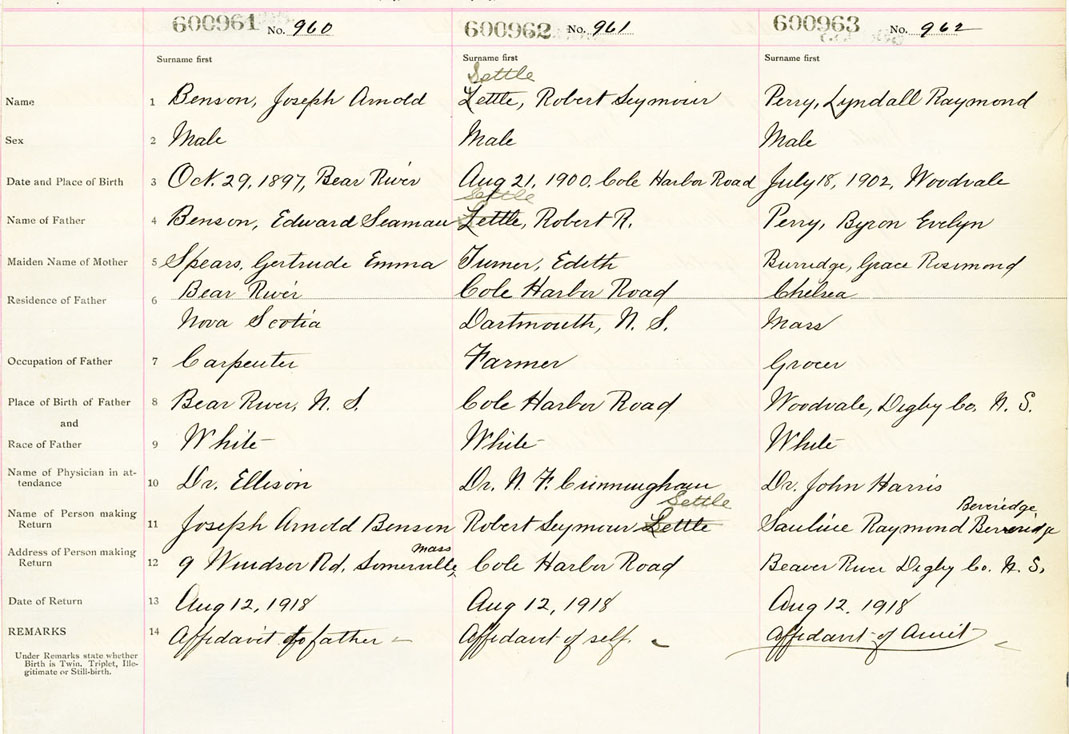 600961 No. 960 600962 No. 961 600963 No. 962
Surname first Surname first Surname first
Settle
Name 1 Benson, Joseph Arnold Lettle, Robert Seymour Perry, Lyndall Raymond
Sex 2 Male Male Male
Date and Place of Birth 3 Oct. 29, 1897, Bear River Aug 21, 1900, Cole Harbor Road July 18, 1902, Woodvale
Settle
Name of Father 4 Benson, Edward Seaman Lettle, Robert R. Perry, Byron Evelyn
Maiden Name of Mother 5 Spears, Gertrude Emma Turner, Edith Burridge, Grace Rosimond
Residence of Father 6 Bear River Cole Harbor Road Chelsea
Nova Scotia Dartmouth, N. S. Mass
Occupation of Father 7 Carpenter Farmer Grocer
Place of Birth of Father 8 Bear River, N. S. Cole Harbor Road Woodvale, Digby Co. N. S.
and
Race of Father 9 White White White
Name of Physician in at-
tendance 10 Dr. Ellison Dr. N. F. Cunningham Dr. John Harris
Settle Beveridge
Name of Person making
Return 11 Joseph Arnold Benson Robert Seymour Lettle Raymond
Address of Person making Mass
Return 12 9 Windsor Rd, Somerville, Cole Harbor Road Beaver River Digby Co. N. S.
Date of Return 13 Aug 12, 1918 Aug 12, 1918 Aug 12. 1918
REMARKS 14 Affidavit of father Affidavit of self. Affidavit of Aunt
Under Remarks state whether
Birth is Twin, Triplet, Ille-
gitimate or Still-birth.